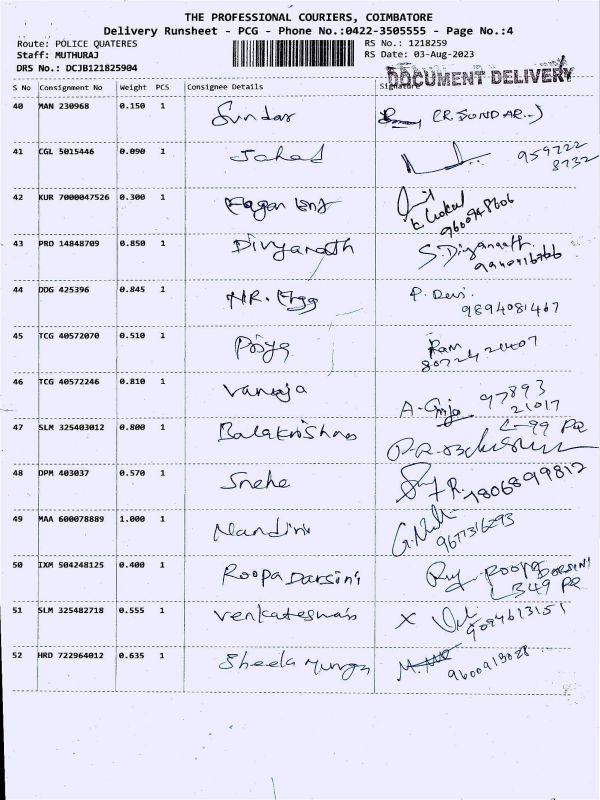 THE PROFESSIONAL COURIERS, COIMBATORE
Delivery Runsheet - PCG - Phone No.:0422-3505555 - Page No.:4
Route: POLICE QUATERES RS No.: 1218259
Staff: MUTHURAJ RS Date: 03-Aug-2023
DRS No.: DCJB121825904
DOCUMENT DELIVERY
S No Consignment No Weight PCS Consignee Details Signature
40 MAN 230968 0.150 1 Sundar (R.SUNDAR..)
41 CGL 5015446 0.090 1 Jahad 959722
8732
42 KUR 7000047526 0.300 1
9600948606
43 PRO 14848709 0.850 1 Divyanath S. Divyanath
44 DDG 425396 0.845 1 P. Devi
9894081467
45 TCG 40572070 0.510 1 Ram
8072421407
46 TCG 40572246 0.810 1 Vanaja A-Girija 97893
21017
47 SLM 325403012 0.800 1 Balakrishnan C-99 PQ
48 DPM 403037 0.570 1 Snehe 7806899812
49 MAA 600078889 1.000 1 Nandini
50 IXM 504248125 0.400 1 Roopa Darsini ROOPA DARSINI
349 PQ
51 SLM 325482718 0.555 1 Venkateswari X
9094613151
52 HRD 722964012 0.635 1 Sheela 9600919028